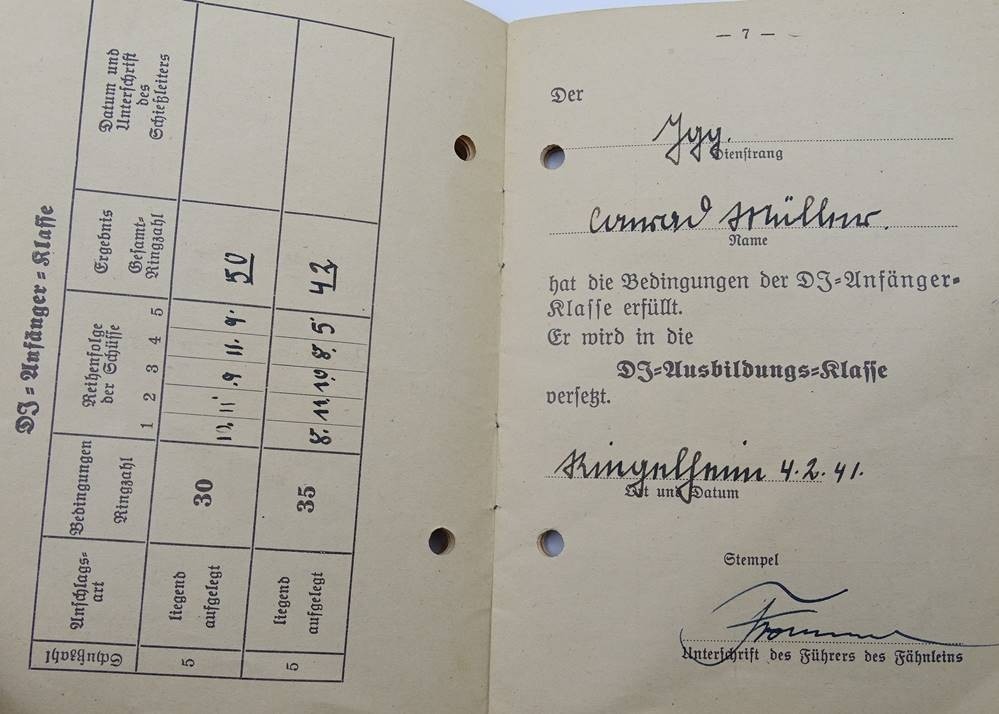 DJ=Anfänger=Klasse
Schußzahl
Anschlags=
art
Bedingungen
Ringzahl
Reihenfolge
der Schüsse
1 2 3 4 5
Ergebnis
Gesamt=
Ringzahl
Datum und
Unterschrift
des
Schießleiters
5
liegend
aufgelegt
30
10, 11, 9 11. 9.
50
5
liegend
aufgelegt
35
8. 11. 10. 8. 5
42
— 7 —
Der
Jgg.
Dienstrang
Conrad Müller.
Name
hat die Bedingungen der DJ=Anfänger=
Klasse erfüllt.
Er wird in die
DJ=Ausbildungs=Klasse
versetzt.
Ringelheim 4.2.41.
Ort und Datum
Stempel
Unterschrift des Führers des Fähnleins